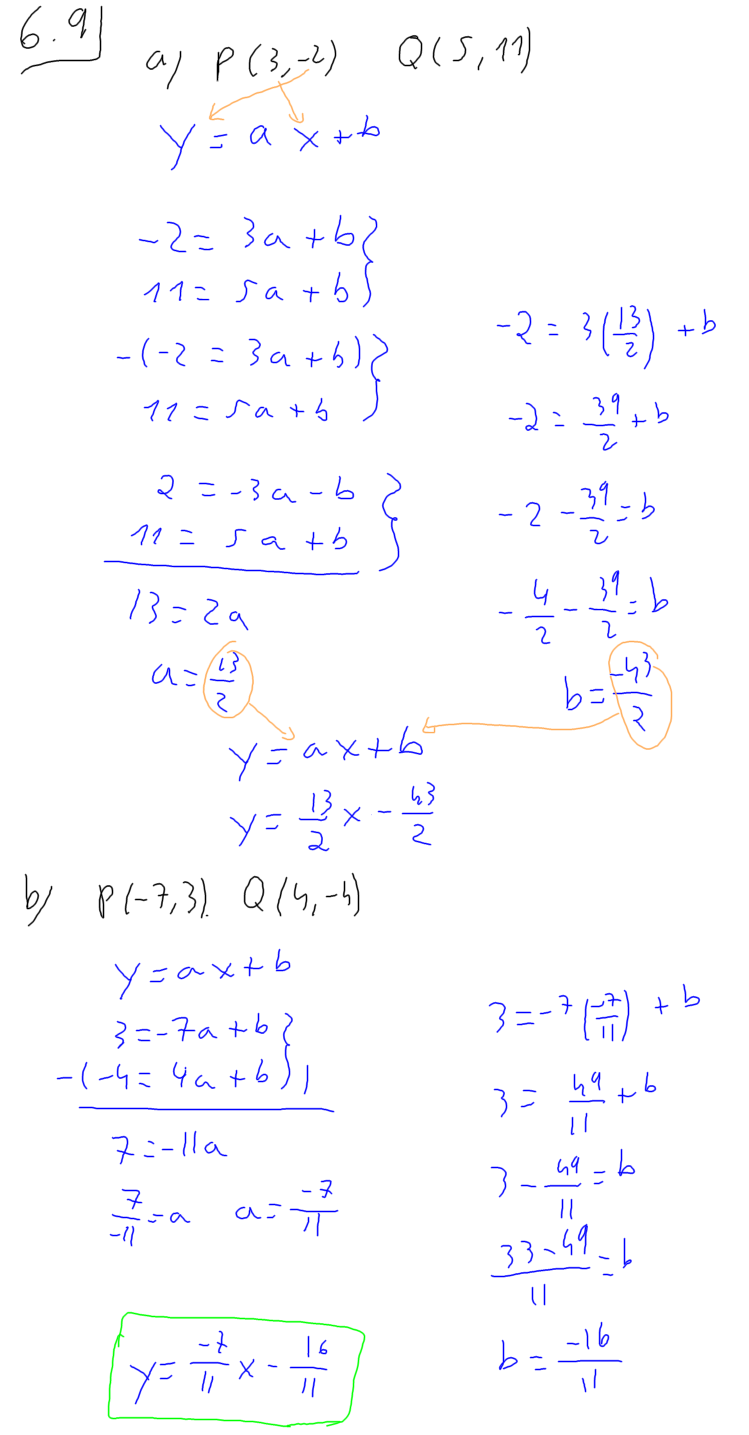 6.9
a) P(3,-2) Q(5,11)
y = ax+b
-2 = 3a + b }
11 = 5a + b }
-(-2 = 3a + b) }
11 = 5a + b }
2 = -3a - b }
11 = 5a + b }
13 = 2a
a = 13/2
-2 = 3(13/2) + b
-2 = 39/2 + b
-2 - 39/2 = b
-4/2 - 39/2 = b
b = -43/2
y = ax+b
y = 13/2 x - 43/2
b) P(-7,3). Q(4,-4)
y = ax+b
3 = -7a + b }
-(-4 = 4a + b) }
7 = -11a
7/-11 = a a = -7/11
3 = -7(-7/11) + b
3 = 49/11 + b
3 - 49/11 = b
33-49/11 = b
b = -16/11
y = -7/11 x - 16/11